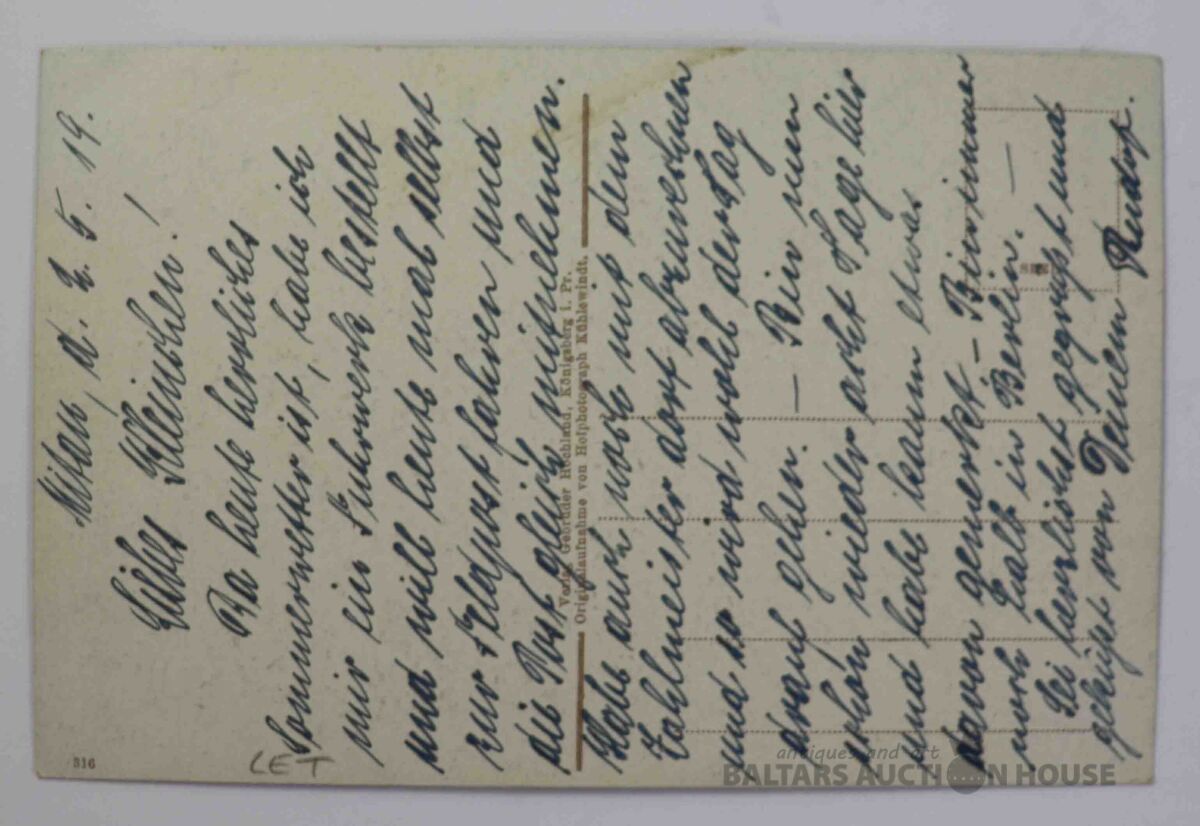 Mitau, d. 2. 5. 19.
Liebes Kleinchen!
Da heute herrliches
Sommerwetter ist, habe ich
mir ein Fuhrwerk bestellt
und will heute mal selbst
zur Feldpost fahren und
die Post gleich mitnehmen.
Habe auch noch mit dem
Zahlmeister dort abzurechnen
und so wird wohl der Tag
drauf gehen. — Bin nun
schon wieder acht Tage hier
und habe kaum etwas
davon gemerkt – Bin immer
noch halb in Berlin. —
Sei herzlichst gegrüßt und
geküßt von Deinem Rudolf.
Verlag Gebrüder Hochland, Königsberg i. Pr.
Originalaufnahme von Hofphotograph Kühlewindt.
316
LET
antiques and art
BALTARS AUCTION HOUSE